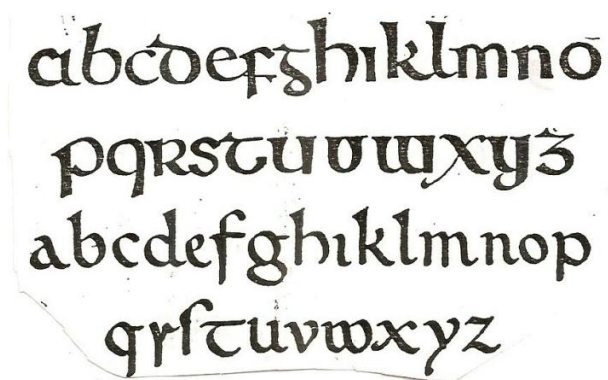 abcdefghıklmnō
pqrstuvwxyz
abcdefghıklmnop
qrſtuvwxyz